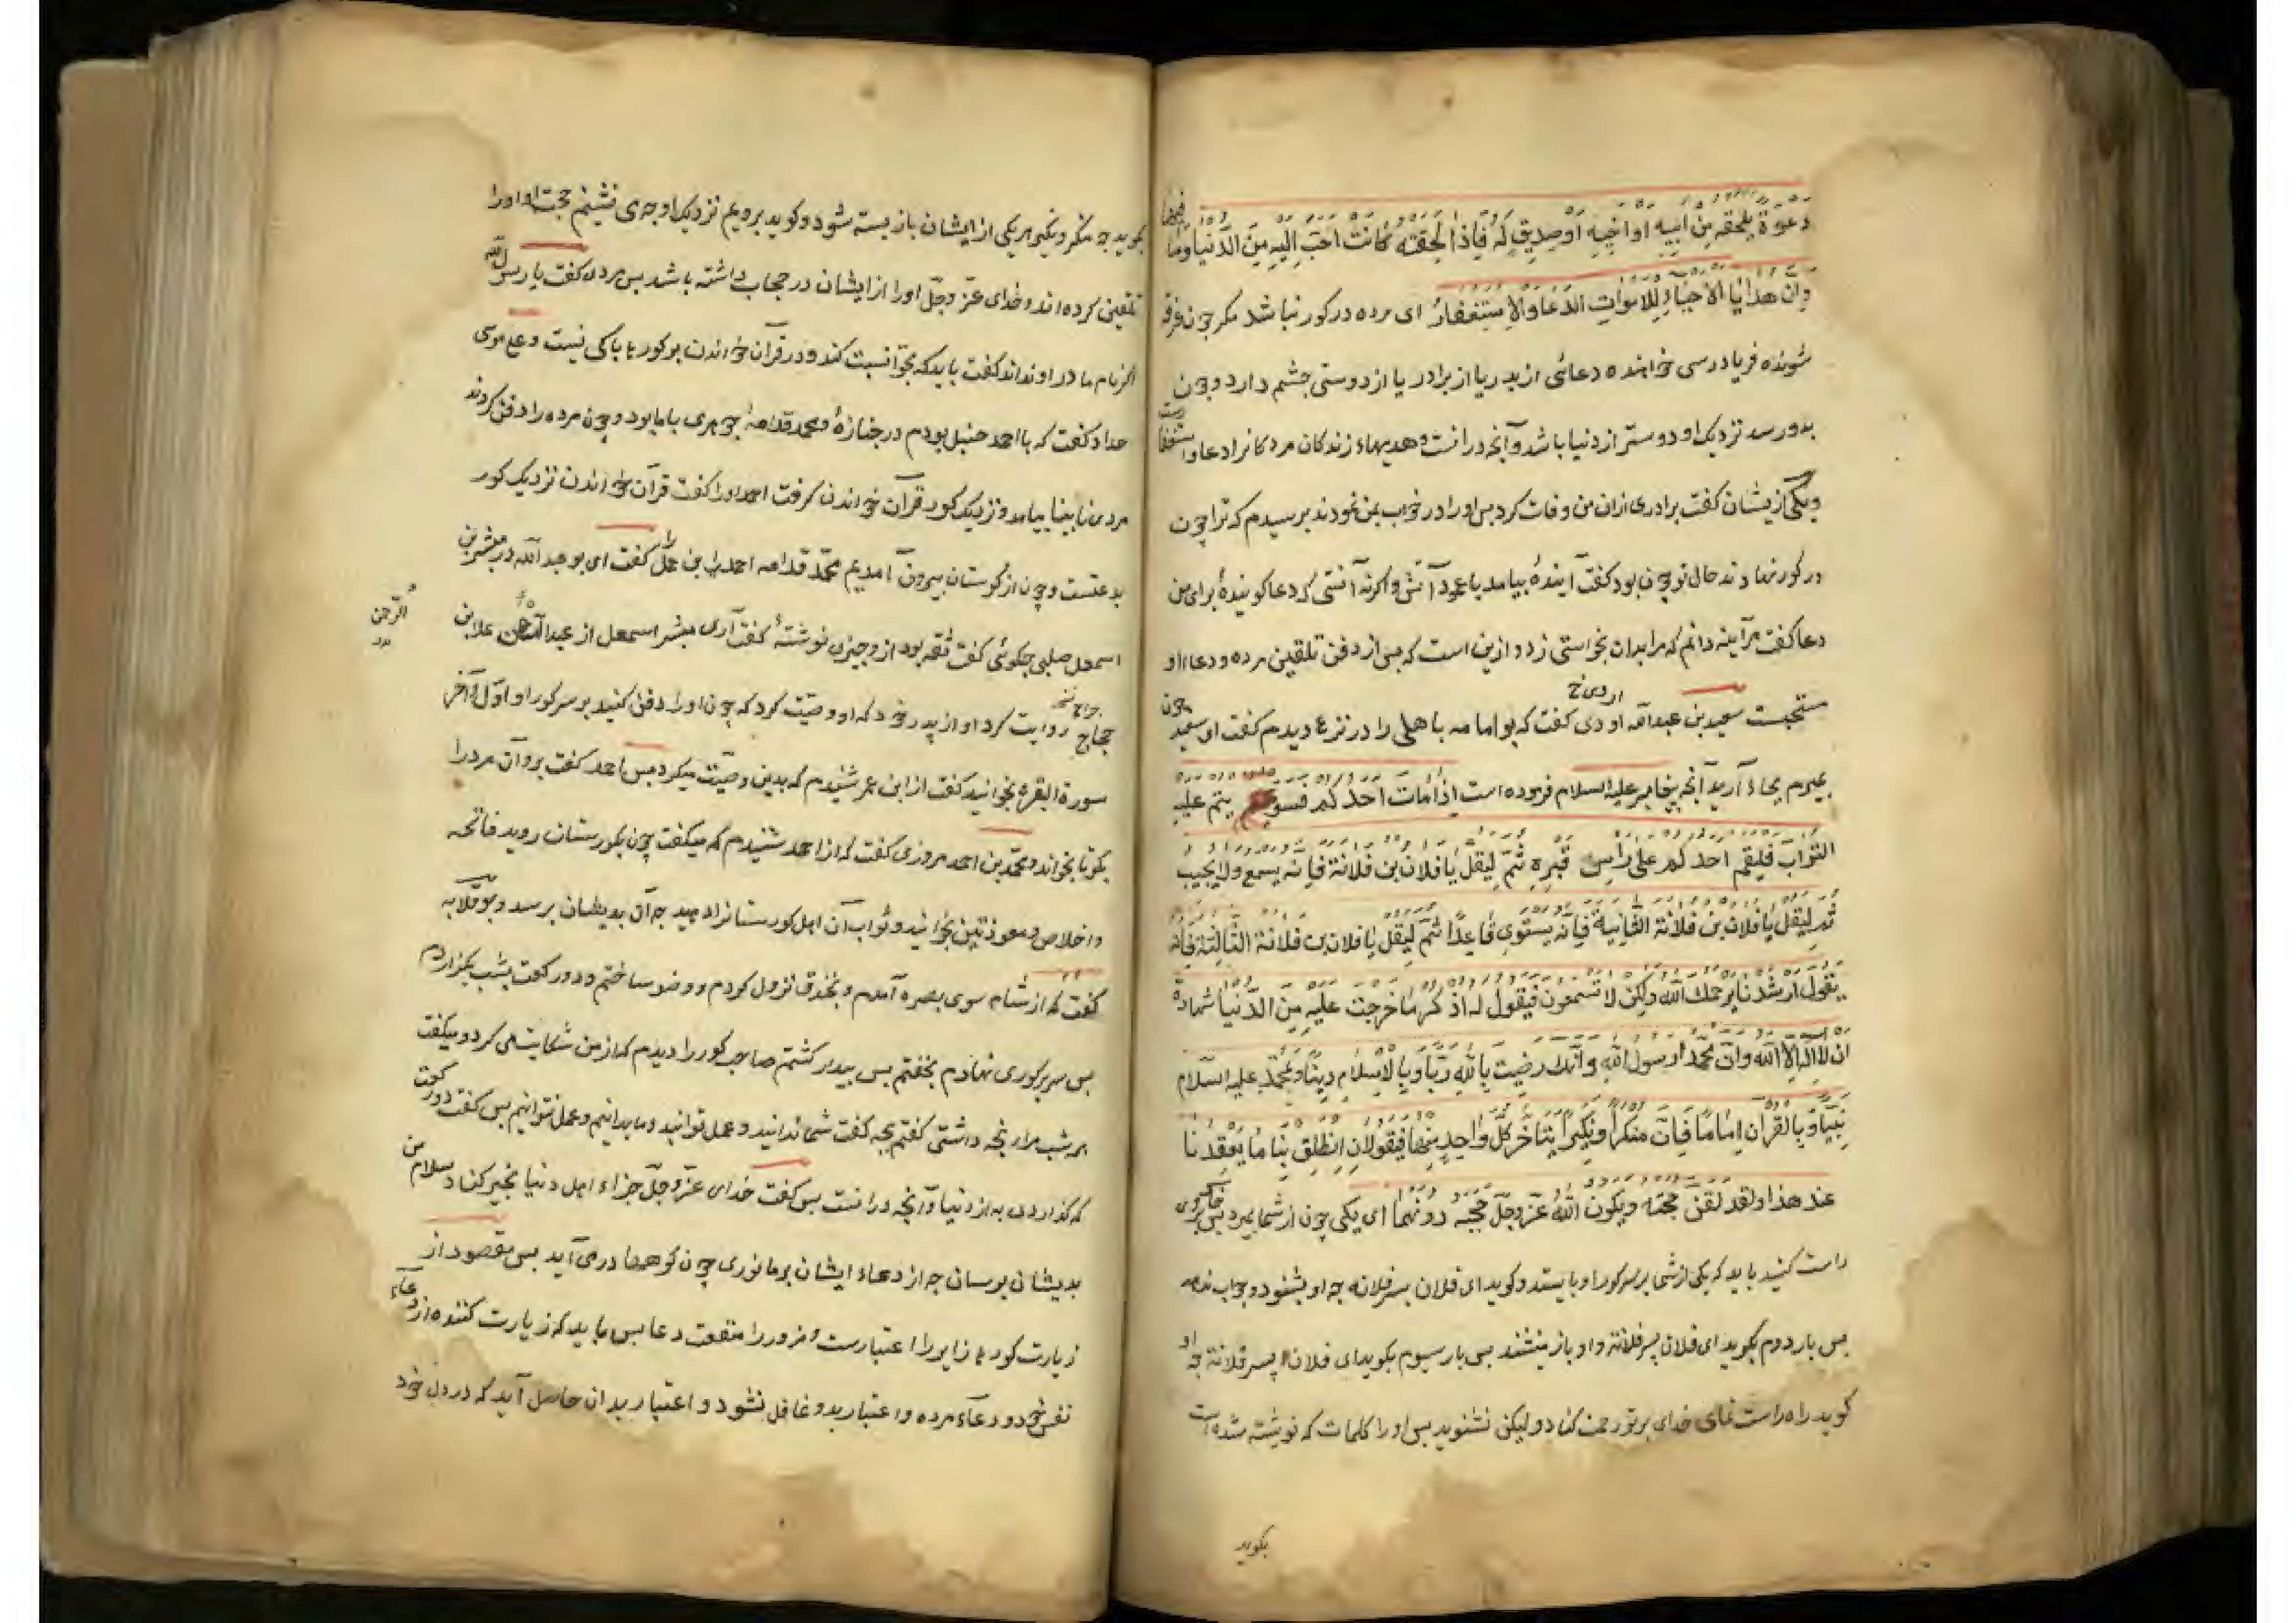 دعوة يلحقه من ابيه او اخيه او صديق له فاذا لحقته كانت احب اليه من الدنيا وما فيها
وان هدايا الاحياء للاموات الدعاء والاستغفار ای مرده در كور نباشد مكر چون غرقه
شونده فرياد رسی خواهنده دعائی از پدر يا از برادر يا از دوستی چشم دارد و چون
بدو رسد نزديك او دوستر از دنيا باشد و آنچه درانست و هديهاء زندكان مردكانرا دعا و استغفار است
و يكی ازيشان كفت برادری ازان من وفات كرد پس او را در خواب بمن نمودند پرسيدم كه ترا چون
در كور نهادند حال تو چون بود كفت آينده بيامد با عود آتش و اكرنه آنستی كه دعا كوينده برای من
دعا كفت هرآينه دانم كه مرا بدان بخواستی زد و ازين است كه پس از دفن تلقين مرده و دعا او را
مستحبست سعيد بن عبدالله اودی كفت كه بو امامه باهلی را در نزع ديدم كفت ای سعيد چون
ازدی خ
بميرم بجاء آريد آنچه پيغامبر عليه السلام فرموده است اذا مات احدكم فسويتم عليه
التراب فليقم احدكم على راس قبره ثم ليقل يا فلان بن فلانة فانه يسمع ولا يجيب
ثم ليقل يا فلان بن فلانة الثانية فانه يستوى قاعدا ثم ليقل يا فلان بن فلانة الثالثة فانه
يقول ارشدنا يرحمك الله ولكن لا تسمعون فيقول له اذكر ما خرجت عليه من الدنيا شهادة
ان لا اله الا الله وان محمدا رسول الله وانك رضيت بالله ربا وبالاسلام دينا وبمحمد عليه السلام
نبيا وبالقران اماما فان منكرا ونكيرا يتاخر كل واحد منهما فيقولان انطلق بنا ما يقعدنا
عند هذا ولقد لقن حجته ويكون الله عز وجل حجيجه دونهما ای يكی چون از شما بميرد پس خاك بروی
راست كنيد بايد كه يكی از شما بر سر كور او بايستد و كويد ای فلان پسر فلانه چه او بشنود و جواب ندهد
پس بار دوم بكويد ای فلان پسر فلانة و او باز بنشيند پس بار سيوم بكويد ای فلان پسر فلانة چه او
كويد راه راست نمای خدای بر تو رحمت كناد و ليكن نشنويد پس او را كلمات كه نوشته شده است
بكويد
بكويد چه منكر و نكير هر يكی از ايشان باز پسته شود و كويد برويم نزديك او چه می نشينيم حجت او را
تلقين كرده اند و خدای عز وجل او را از ايشان در حجاب داشته باشد پس مردی كفت يا رسول الله
اكر نام مادر او نداند كفت بايد كه بحوا نسبت كند و در قرآن خواندن بر كورها باكی نيست و علی موسی
حداد كفت كه با احمد حنبل بودم در جنازهٔ و محمد قدامهٔ جوهری با ما بود و چون مرده را دفن كردند
مردی نابينا بيامد و نزديك كور قرآن خواندن كرفت احمد او را كفت قرآن خواندن نزديك كور
بدعتست و چون از كورستان بيرون آمديم محمد قدامه احمد را كفت ای بو عبدالله در مبشر بن
اسمعيل حلبی چكوئی كفت ثقه بود ازو چيزی نوشتهٔ كفت آری مبشر اسمعيل از عبد الرحمن علا بن
الرحمن
حجاج روايت كرد او از پدر خود كه او وصيت كرد كه چون او را دفن كنيد بر سر كور او اول و آخر
سورة البقره بخوانيد كفت از ابن عمر شنيدم كه بدين وصيت ميكرد پس احمد كفت برو آن مرد را
بكو تا بخواند و محمد بن احمد مروزی كفت كه از احمد شنيدم كه ميكفت چون بكورستان رويد فاتحه
و اخلاص و معوذتين بخوانيد و ثواب آن اهل كورستانرا دهيد چه آن بديشان برسد و بو قلابه
كفت كه از شام سوی بصره آمدم و بخندق نزول كردم و وضو ساختم و دو ركعت بشب بكزاردم
پس سر بر كوری نهادم بخفتم پس بيدار كشتم صاحب كور را ديدم كه از من شكايت می كرد و ميكفت
هر شب مرا رنجه داشتی كفتم بچه كفت شما ندانيد و عمل توانيد و ما بدانيم و عمل نتوانيم پس كفت دو ركعت
كه كذاردی به از دنيا و آنچه درانست پس كفت خدای عز وجل جزاء اهل دنيا بخير كناد سلام من
بديشان برسان چه از دعاء ايشان بر ما نوری چون كوهها در می آيد پس مقصود از
زيارت كورها زاير را اعتبارست و مزور را منفعت دعا پس بايد كه زيارت كننده از دعاء
نفس خود و دعاء مرده و اعتبار بدو غافل نشود و اعتبار بدان حاصل آيد كه در دل خود